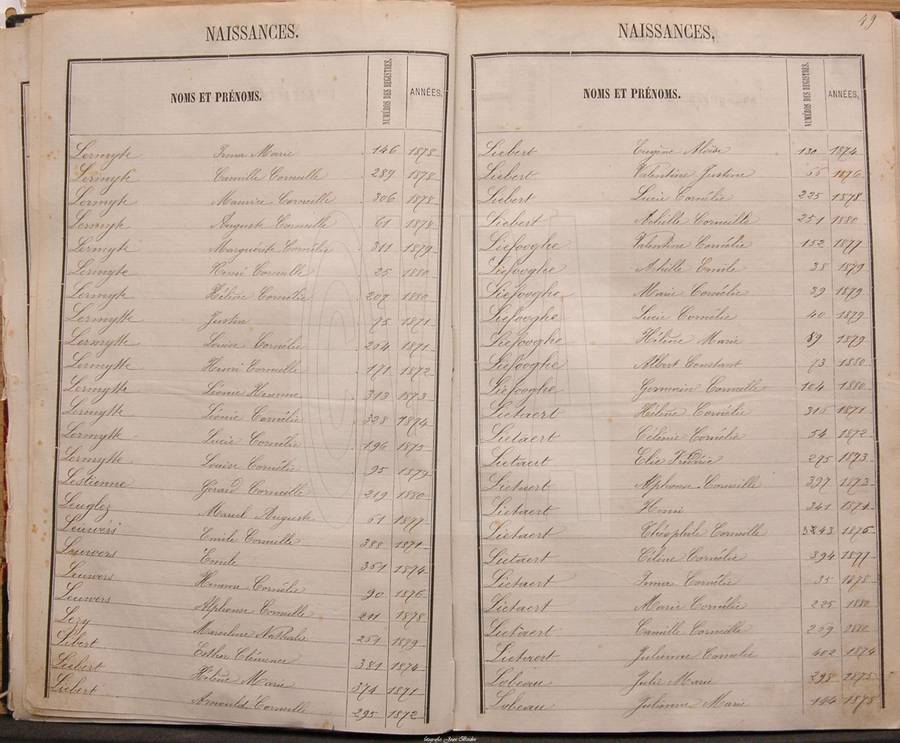 NAISSANCES.
NOMS ET PRÉNOMS. NUMÉROS DES REGISTRES. ANNÉES.
Lermyte Irma Marie 146 1878
Lermyte Camille Corneille 289 1878
Lermyte Maurice Corneille 306 1878
Lermyte Auguste Corneille 61 1878
Lermyte Marguerite Cornélie 311 1879
Lermyte Henri Corneille 25 1880
Lermyte Hélène Cornélie 207 1880
Lermytte Justin 75 1871
Lermytte Louise Cornélie 1871
Lermytte Henri Corneille 171 1872
Lermytte Léonie 313 1873
Lermytte Léonie Cornélie 328 1874
Lermytte Lucie Cornélie 196 1875
Lermytte Louise Cornélie 95 1879
Lestienne Gérard Corneille 219 1880
Leuglez Marcel Auguste 61 1877
Leuwers Emile Corneille 388 1871
Leuwers Emile 361 1874
Leuwers Emma Cornélie 90 1876
Leuwers Alphonse Corneille 1878
Lezy Marceline Nathalie 251 1879
Libert Esther Clémence 381 1874
Liebert Hélène Marie 374 1871
Liebert Arnould Corneille 295 1872
49
NAISSANCES,
NOMS ET PRÉNOMS. NUMÉROS DES REGISTRES. ANNÉES,
Liebert Eugène Aloïse 130 1874
Liebert Valentine Justine 55 1876
Liebert Lucie Cornélie 225 1878
Liebert Achille Corneille 251 1880
Liefooghe Valentine Cornélie 152 1877
Liefooghe Achille Emile 38 1879
Liefooghe Marie Cornélie 39 1879
Liefooghe Lucie Cornélie 40 1879
Liefooghe Hélène Marie 89 1879
Liefooghe Albert Constant 73 1880
Liefooghe Germain Corneille 104 1880
Lietaert Hélène Cornélie 315 1871
Lietaert Célénie Cornélie 54 1872
Lietaert Elie Frédéric 275 1873
Lietaert Alphonse Corneille 397 1873
Lietaert Henri 341 1874
Lietaert Théophile Corneille 1876
Lietaert Céline Cornélie 394 1877
Lietaert Irma Cornélie 35 1878
Lietaert Marie Cornélie 225 1880
Lietaert Camille Corneille 259 1880
Lietaert Julienne Cornélie 402 1874
Lobeau Julie Marie 298 1875
Lobeau Julienne Marie 144 1878